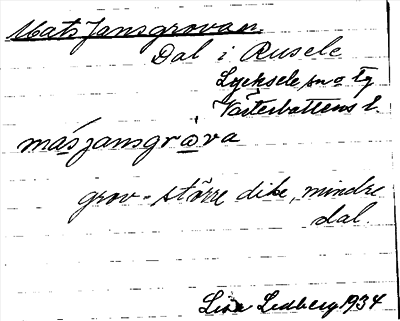 Mats Jansgrovan.
Dal i Rusele
Lycksele sn o tg
Västerbottens l.
másjansgrǻva
grov = större dike, mindre
dal.
Lisa Lidberg 1934